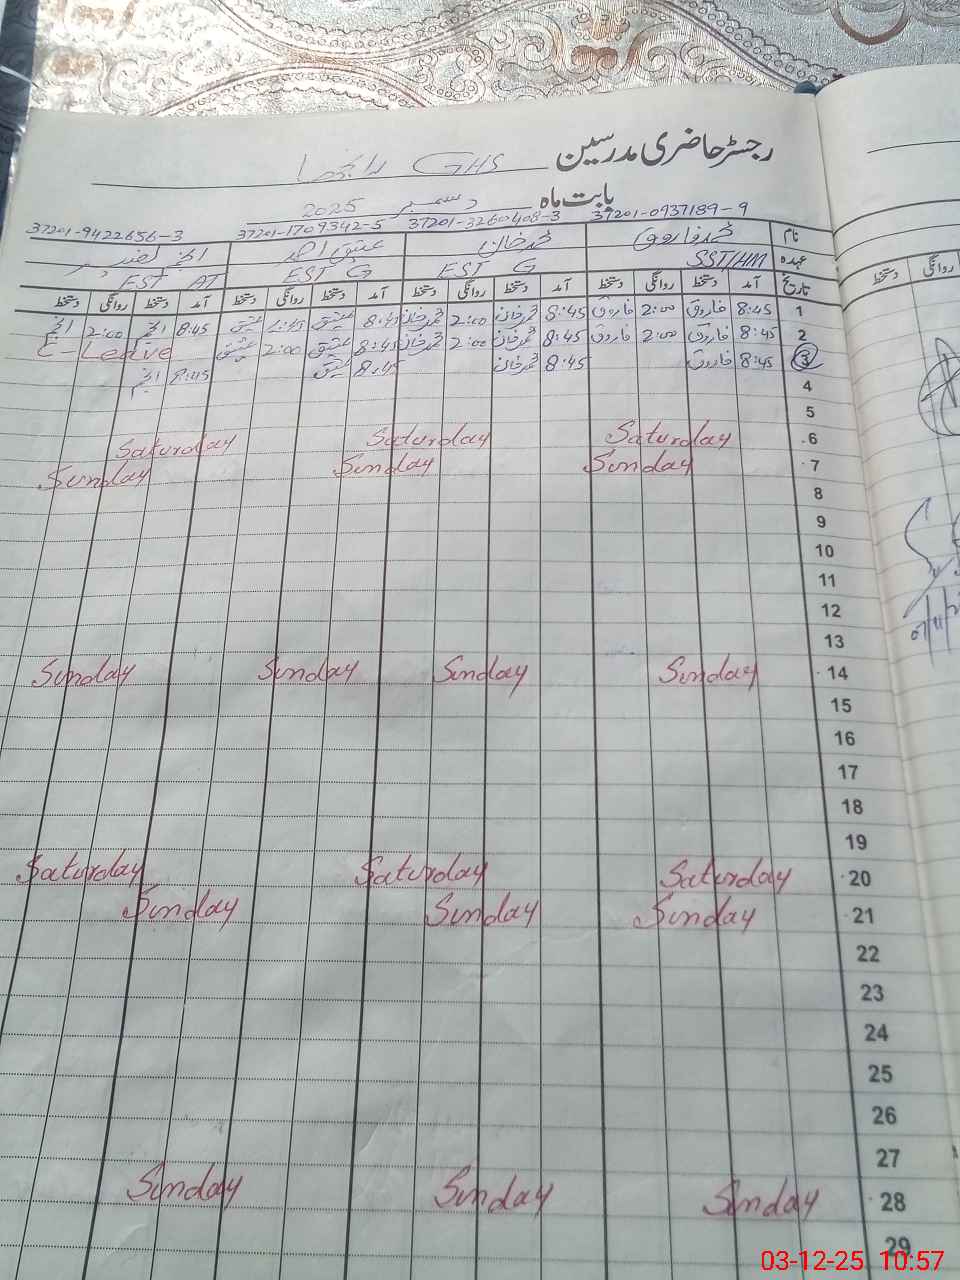 رجسٹر حاضری مدرسین GHS
بابت ماہ دسمبر 2025
37201-0937189-9 37201-3260408-3 37201-1709342-5 37201-9422656-3
نام محمد فاروق محمد خان عتیق احمد
عہدہ SST/HM EST G EST G EST AT
تاریخ آمد دستخط روانگی دستخط آمد دستخط روانگی دستخط آمد دستخط روانگی دستخط آمد دستخط روانگی دستخط
1 8:45 فاروق 2:00 فاروق 8:45 محمد خان 2:00 محمد خان 8:45 عتیق 1:45 عتیق 8:45 انجم 2:00 انجم
2 8:45 فاروق 2:00 فاروق 8:45 محمد خان 2:00 محمد خان 8:45 عتیق 2:00 عتیق E-Leave
3 8:45 فاروق 8:45 محمد خان 8:45 عتیق 8:45 انجم
4
5
6 Saturday Saturday Saturday
7 Sunday Sunday Sunday
8
9
10
11
12
13
14 Sunday Sunday Sunday Sunday
15
16
17
18
19
20 Saturday Saturday Saturday
21 Sunday Sunday Sunday
22
23
24
25
26
27
28 Sunday Sunday Sunday
29
روانگی دستخط
03-12-25 10:57